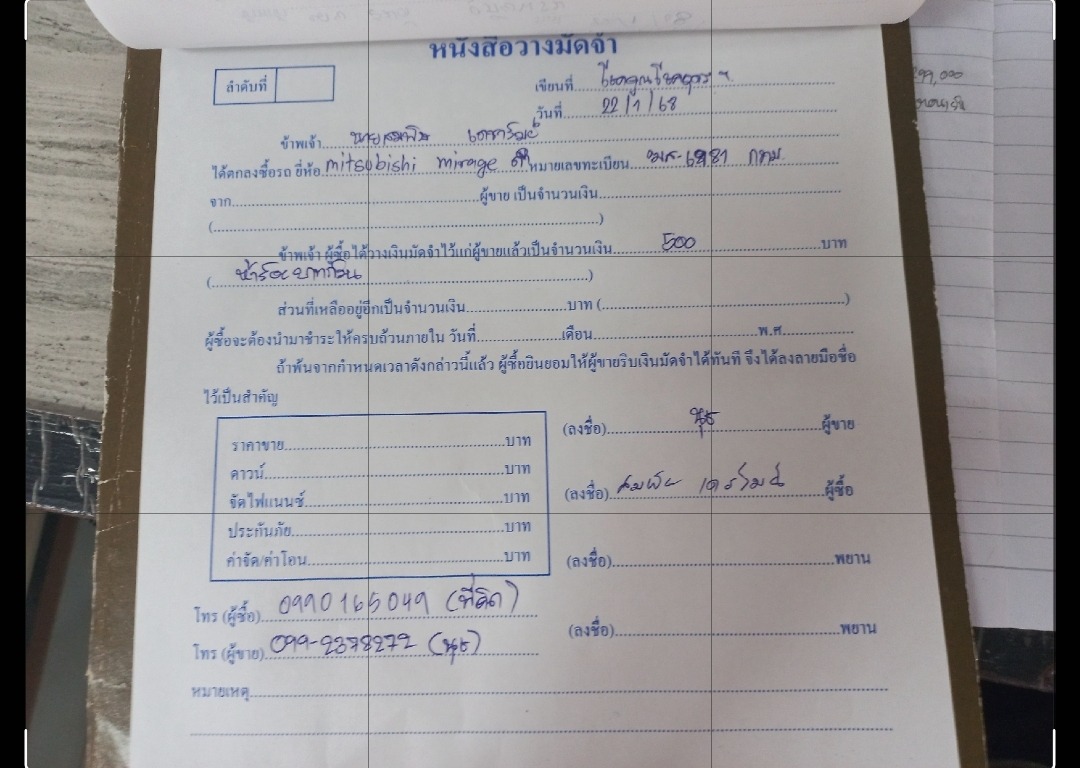 หนังสือวางมัดจำ
ลำดับที่
เขียนที่
วันที่ 22/1/68
ข้าพเจ้า
ได้ตกลงซื้อรถ ยี่ห้อ mitsubishi mirage หมายเลขทะเบียน กทม.
จาก ผู้ขาย เป็นจำนวนเงิน
( )
ข้าพเจ้า ผู้ซื้อได้วางเงินมัดจำไว้แก่ผู้ขายแล้วเป็นจำนวนเงิน 500 บาท
( ห้าร้อยบาทถ้วน )
ส่วนที่เหลืออยู่อีกเป็นจำนวนเงิน บาท ( )
ผู้ซื้อจะต้องนำมาชำระให้ครบถ้วนภายใน วันที่ เดือน พ.ศ.
ถ้าพ้นจากกำหนดเวลาดังกล่าวนี้แล้ว ผู้ซื้อยินยอมให้ผู้ขายริบเงินมัดจำได้ทันที จึงได้ลงลายมือชื่อ
ไว้เป็นสำคัญ
ราคาขาย บาท
ดาวน์ บาท
จัดไฟแนนซ์ บาท
ประกันภัย บาท
ค่าจัด/ค่าโอน บาท
(ลงชื่อ) นุช ผู้ขาย
(ลงชื่อ) ผู้ซื้อ
(ลงชื่อ) พยาน
(ลงชื่อ) พยาน
โทร (ผู้ซื้อ) 0990165049
โทร (ผู้ขาย) 099-2378272 (นุช)
หมายเหตุ